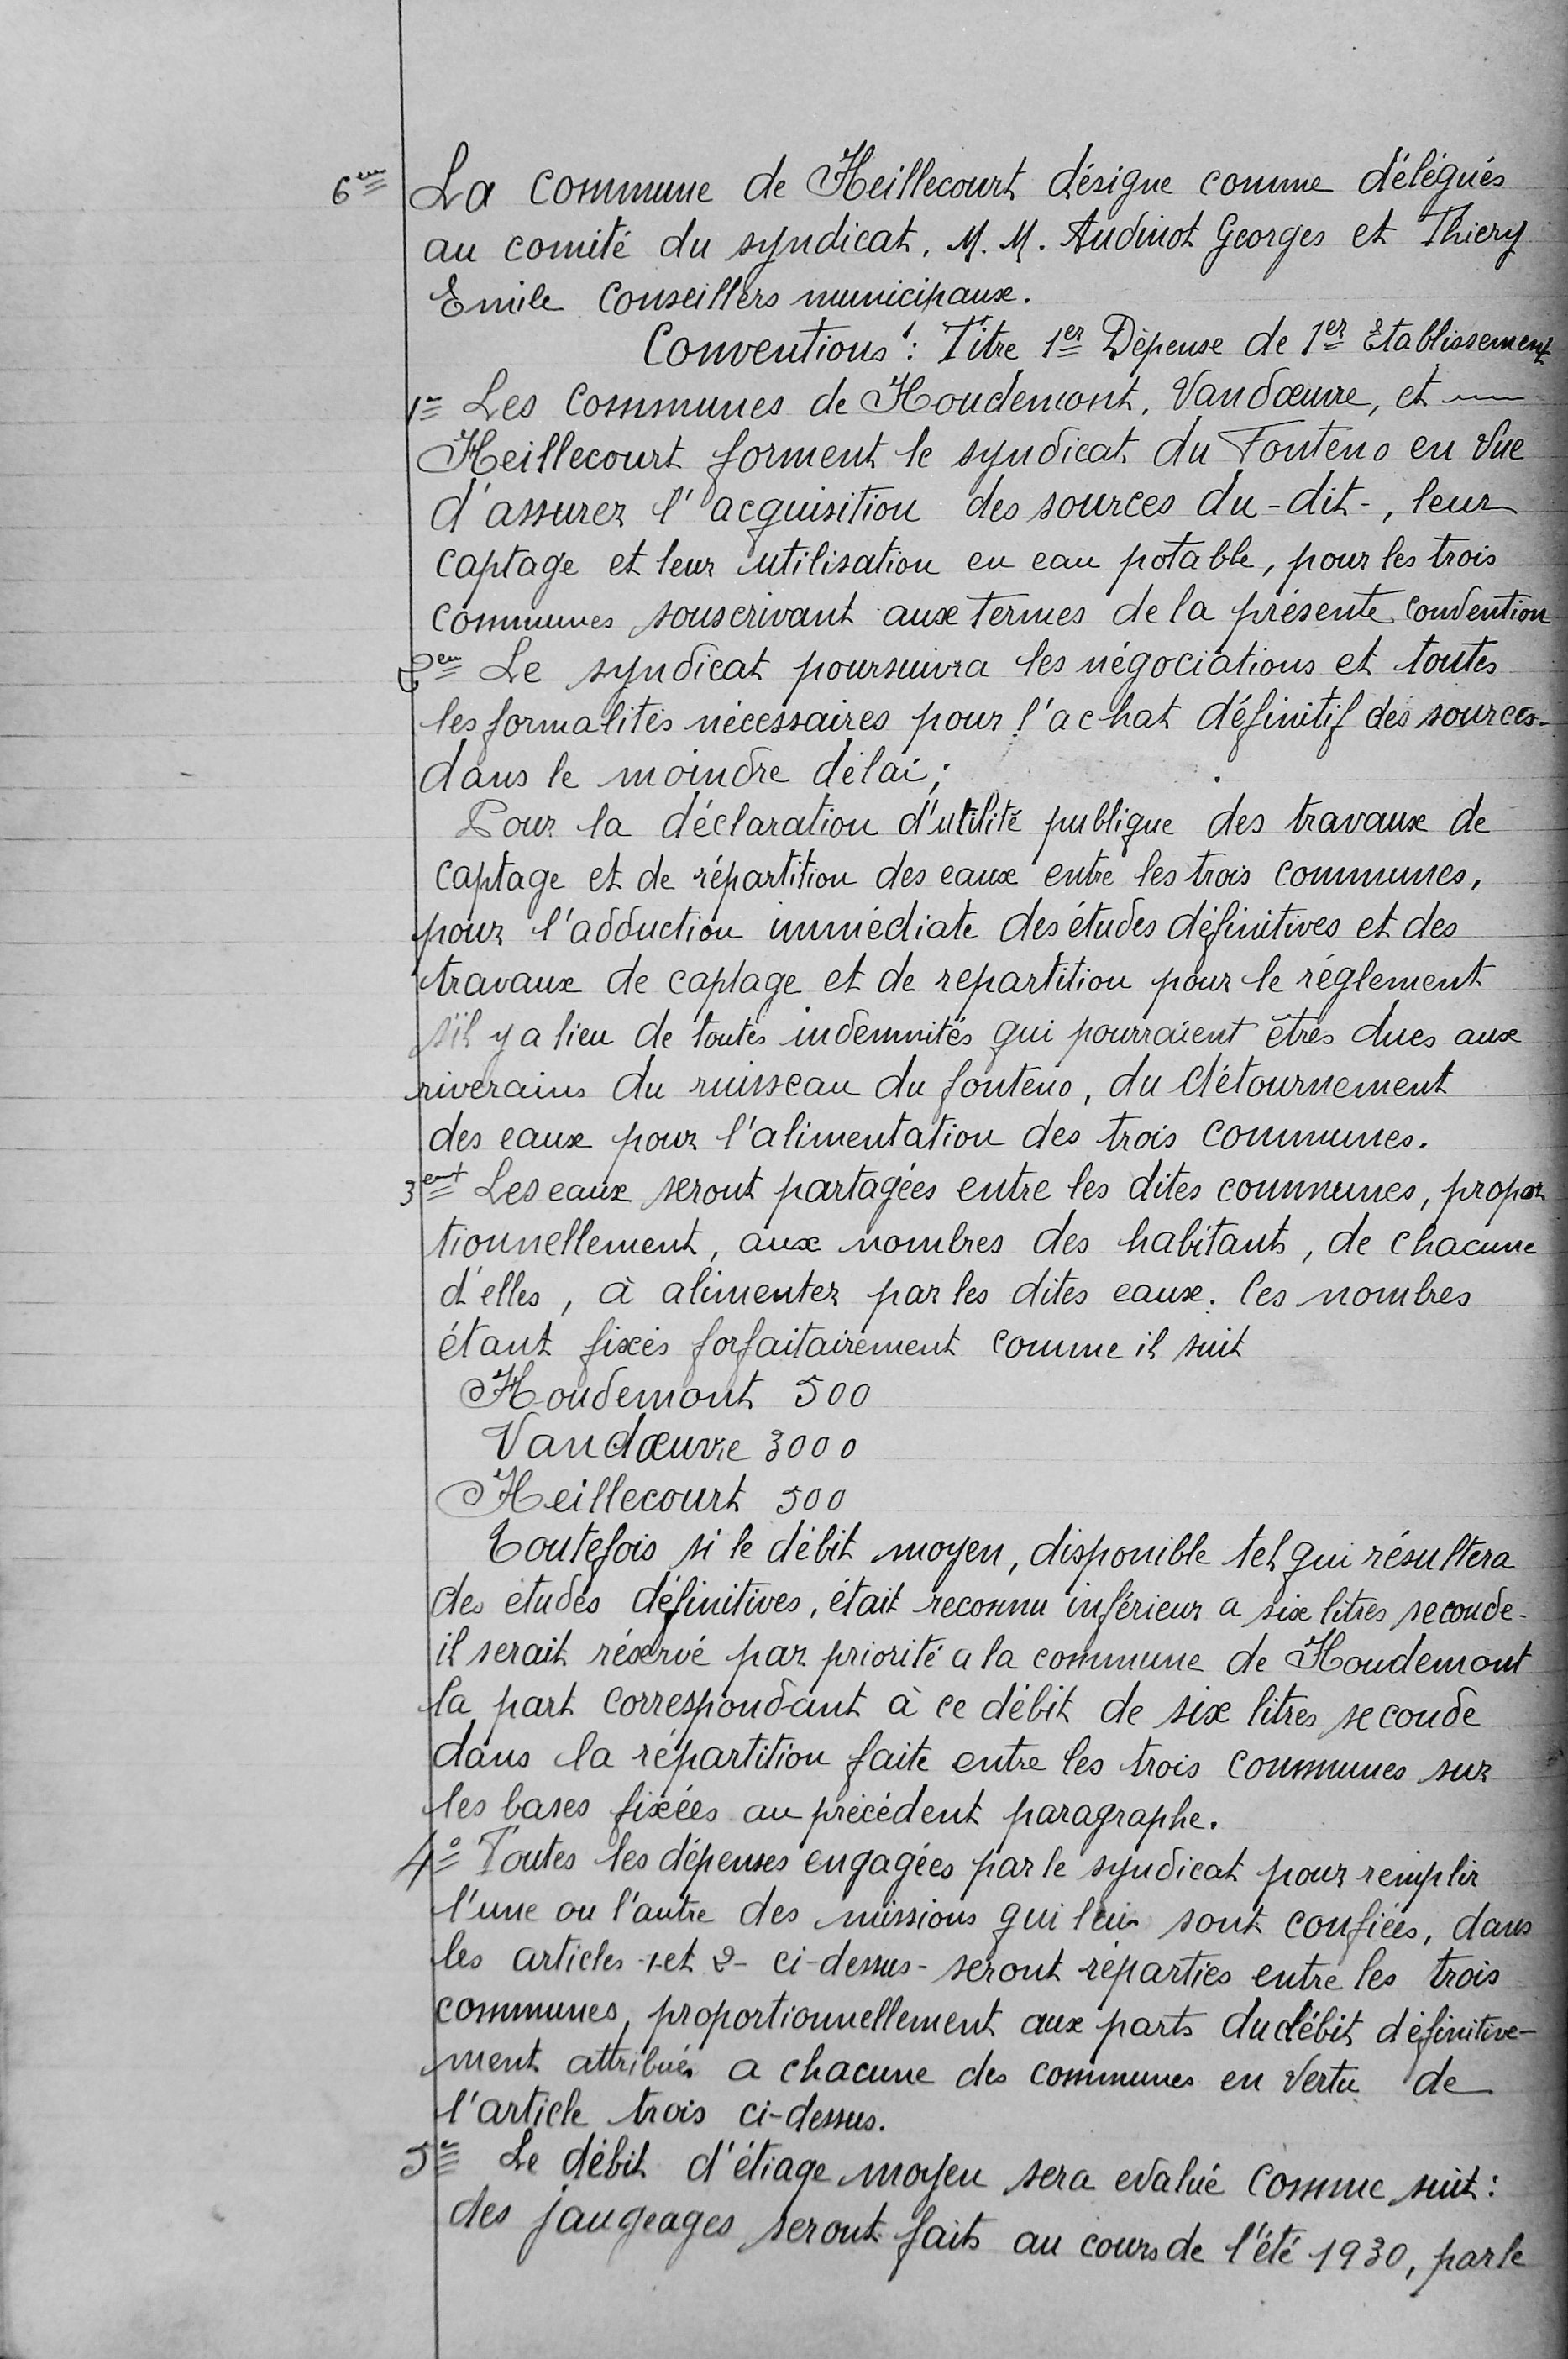 6em La commune de Heillecourt désigne comme délégués
au comité du syndicat, M. M. Audinot Georges et Thiery
Emile Conseillers municipaux.
Conventions : Titre 1er Dépense de 1er Etablissement
1e Les Communes de Houdemont, Vandœuvre, et —
Heillecourt forment le syndicat du Fonteno en vue
d'assurer l'acquisition des sources du-dit-, leur
captage et leur utilisation en eau potable, pour les trois
communes souscrivant aux termes de la présente convention
2em Le syndicat poursuivra les négociations et toutes
les formalités nécessaires pour l'achat définitif des sources-
dans le moindre délai ;
Pour la déclaration d'utilité publique des travaux de
captage et de répartition des eaux entre les trois communes,
pour l'adduction immédiate des études définitives et des
travaux de captage et de repartition pour le réglement
s'il y a lieu de toutes indemnités qui pourraient êtres dues aux
riverains du ruisseau du fonteno, du détournement
des eaux pour l'alimentation des trois communes.
3ent Les eaux seront partagées entre les dites communes, propor
tionnellement, aux nombres des habitants, de chacune
d'elles, à alimenter par les dites eaux. Ces nombres
étant fixés forfaitairement comme il suit
Houdemont 500
Vandœuvre 3000
Heillecourt 500
Toutefois si le débit moyen, disponible tel qui résultera
des études définitives, était reconnu inférieur a six litres seconde-
il serait réservé par priorité a la commune de Houdemont
la part correspondant à ce débit de six litres seconde
dans la répartition faite entre les trois communes sur
les bases fixées au précédent paragraphe.
4° Toutes les dépenses engagées par le syndicat pour remplir
l'une ou l'autre des missions qui leur sont confiées, dans
les articles -1-et 2- ci-dessus- seront réparties entre les trois
communes, proportionnellement aux parts du débit définitive-
ment attribués a chacune des communes en vertu de
l'article trois ci-dessus.
5e Le débit d'étiage moyen sera evalué comme suit :
des jaugeages seront faits au cours de l'été 1930, par le